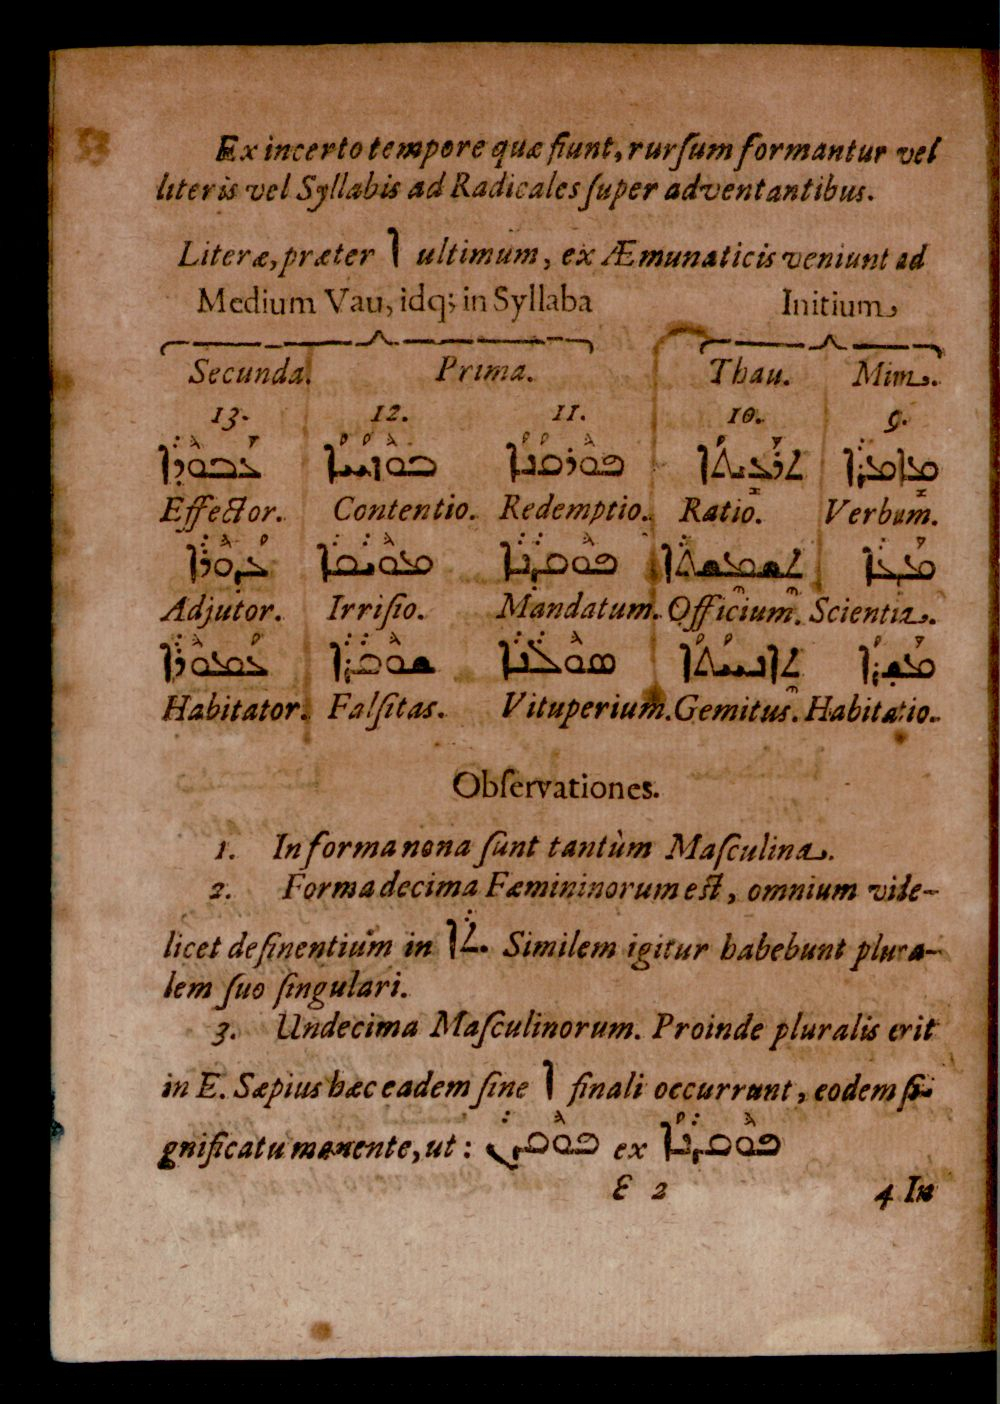 53
Ex incerto tempore quæ fiunt, rurſum formantur vel
literis vel Syllabis ad Radicales ſuper adventantibus.
Literæ, præter ܐ ultimum, ex Æmunaticis veniunt ad
Medium Vau, idq; in Syllaba Initium
Secunda. Prima. Thau. Mim.
13. 12. 11. 10. 9.
ܥܒܘܕܐ ܦܘܪܩܢܐ ܡܐܡܪܐ
Effector. Contentio. Redemptio. Ratio. Verbum.
ܥܕܘܪܐ ܦܘܩܕܢܐ ܬܫܡܫܬܐ ܡܕܥܐ
Adjutor. Irriſio. Mandatum. Officium. Scientia.
ܥܡܘܪܐ ܫܘܩܪܐ ܬܐܢܚܬܐ ܡܥܡܪܐ
Habitator. Falſitas. Vituperium. Gemitus. Habitatio.
Obſervationes.
1. In forma nona ſunt tantùm Maſculina.
2. Forma decima Fæmininorum eſt, omnium vide-
licet deſinentium in ܬܐ. Similem igitur habebunt plura-
lem ſuo ſingulari.
3. Undecima Maſculinorum. Proinde pluralis erit
in E. Sæpius hæc eadem ſine ܐ finali occurrunt, eodem ſi-
gnificatu manente, ut: ܦܘܩܕܢ ex ܦܘܩܕܢܐ
E 2 4 In